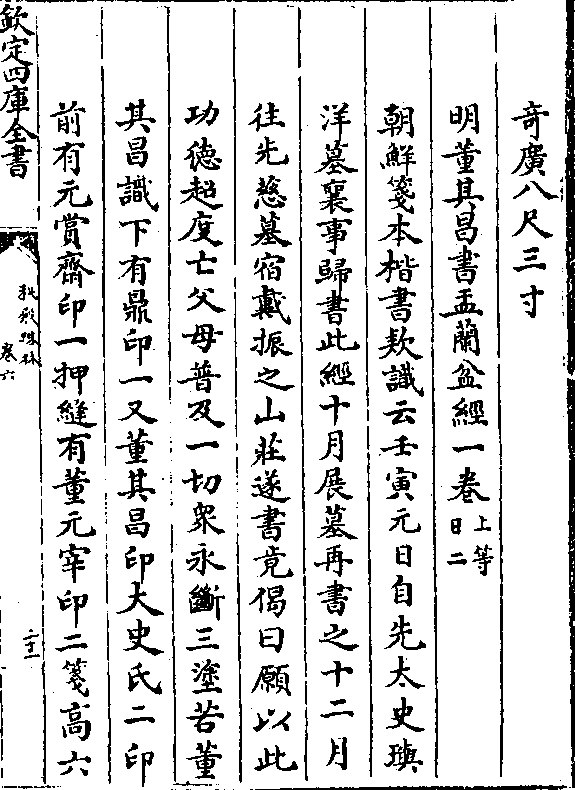 奇廣八尺三寸
明董其昌書盂蘭盆經一卷上等日二
朝鮮箋本楷書欵識云壬寅元日自先太史璵
洋墓襄事歸書此經十月展墓再書之十二月
往先慈墓宿戴振之山莊遂書竟偈曰願以此
功德超度亡父母普及一切衆永斷三塗若董
其昌識下有鼎印一又董其昌印大史氏二印
前有元賞齋印一押縫有董元宰印二箋高六
欽定四庫全書
卷六
二十二